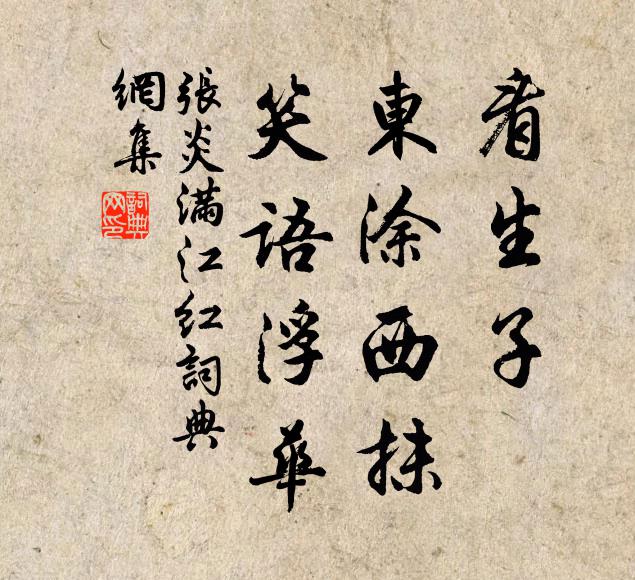 看生子
東涂西抹
笑語浮華
張炎滿江紅詞典
網集
詞典
网印